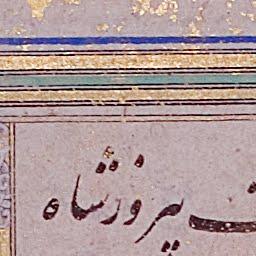 پیروزشاه